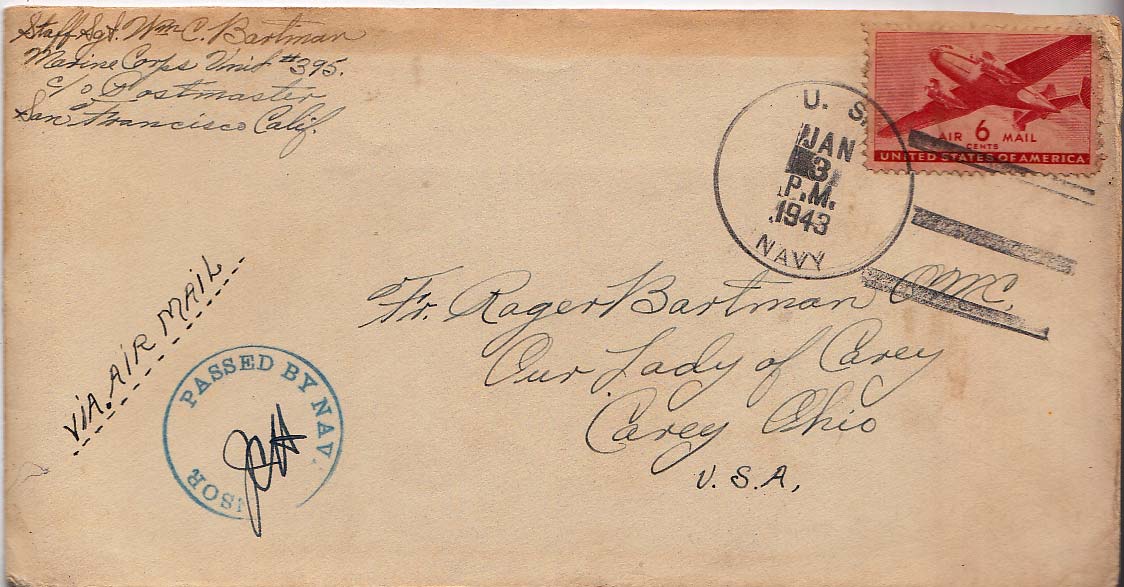 Staff Sgt. Wm C. Bartman
Marine Corps Unit #395.
c/o Postmaster
San Francisco Calif.
U. S.
JAN
3
P.M.
1943
NAVY
AIR 6 MAIL
CENTS
UNITED STATES OF AMERICA
VIA. AIR MAIL
Fr. Roger Bartman OMC.
Our Lady of Carey
Carey Ohio
U. S. A,
PASSED BY NAV
SOR
JCH